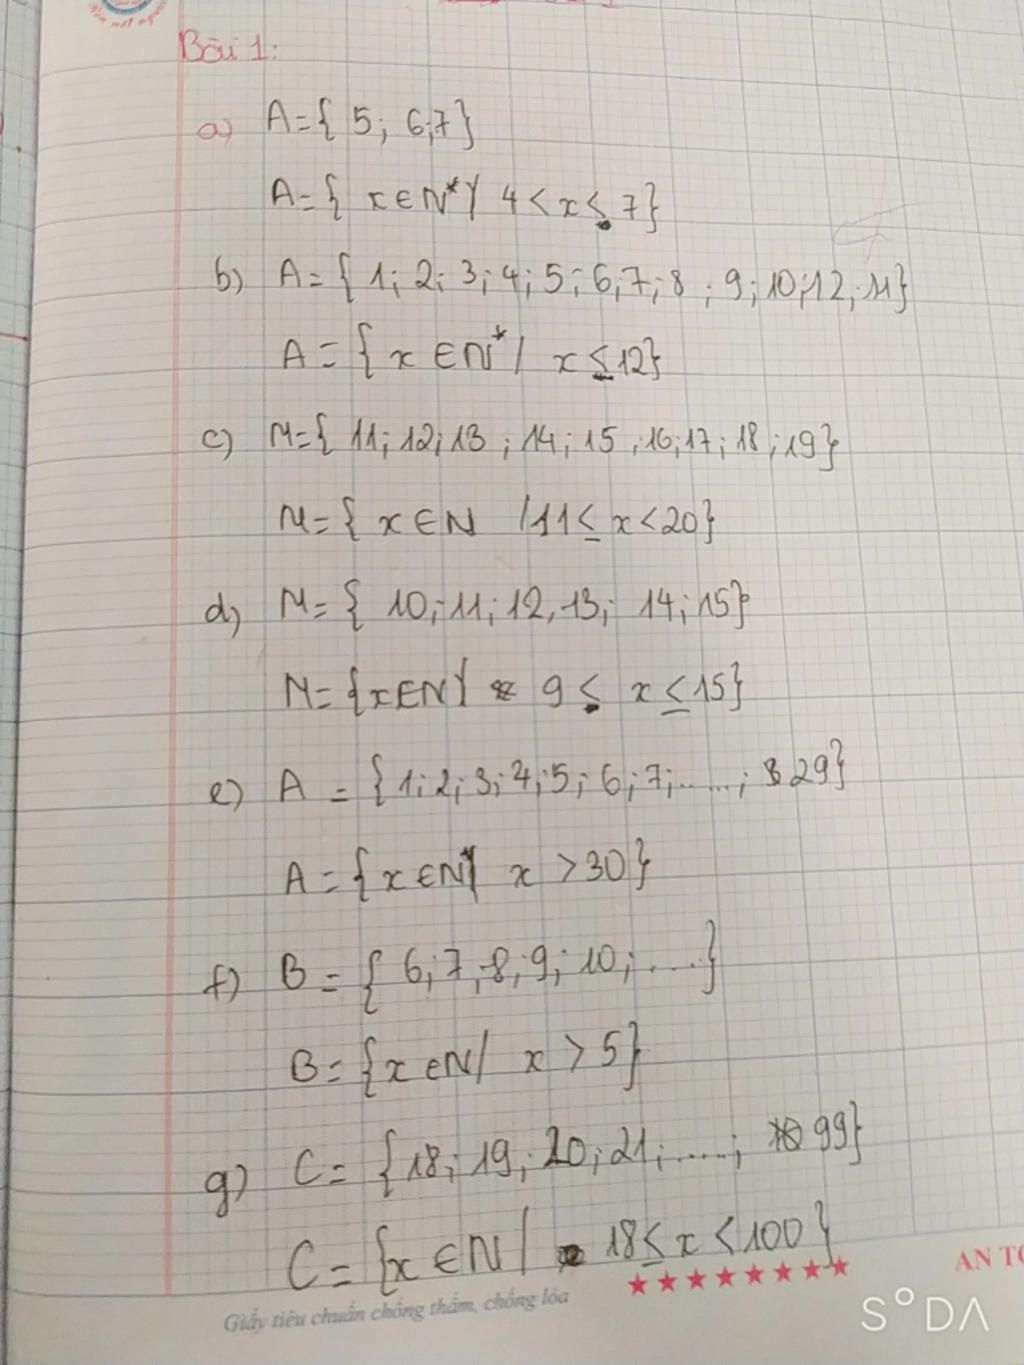 Bài 1:
a) A={ 5; 6;7}
A={ x∈N*/ 4<x≤7}
b) A={ 1; 2; 3; 4; 5; 6; 7; 8; 9; 10; 12; 11}
A={x∈N*/ x≤12}
c) M={ 11; 12; 13; 14; 15, 16; 17; 18; 19}
M={ x∈N /11≤ x<20}
d) M={ 10; 11; 12, 13; 14; 15}
M={x∈N/ 9≤ x≤15}
e) A = {1; 2; 3; 4; 5; 6; 7; .....; 29}
A={x∈N*/ x >30}
f) B={ 6; 7; 8; 9; 10; ....}
B={x∈N/ x > 5}
g) C={18; 19; 20; 21; .....; 99}
C={x∈N/ 18≤x<100}
Giấy tiêu chuẩn chống thấm, chống lóa
AN TO
SODA